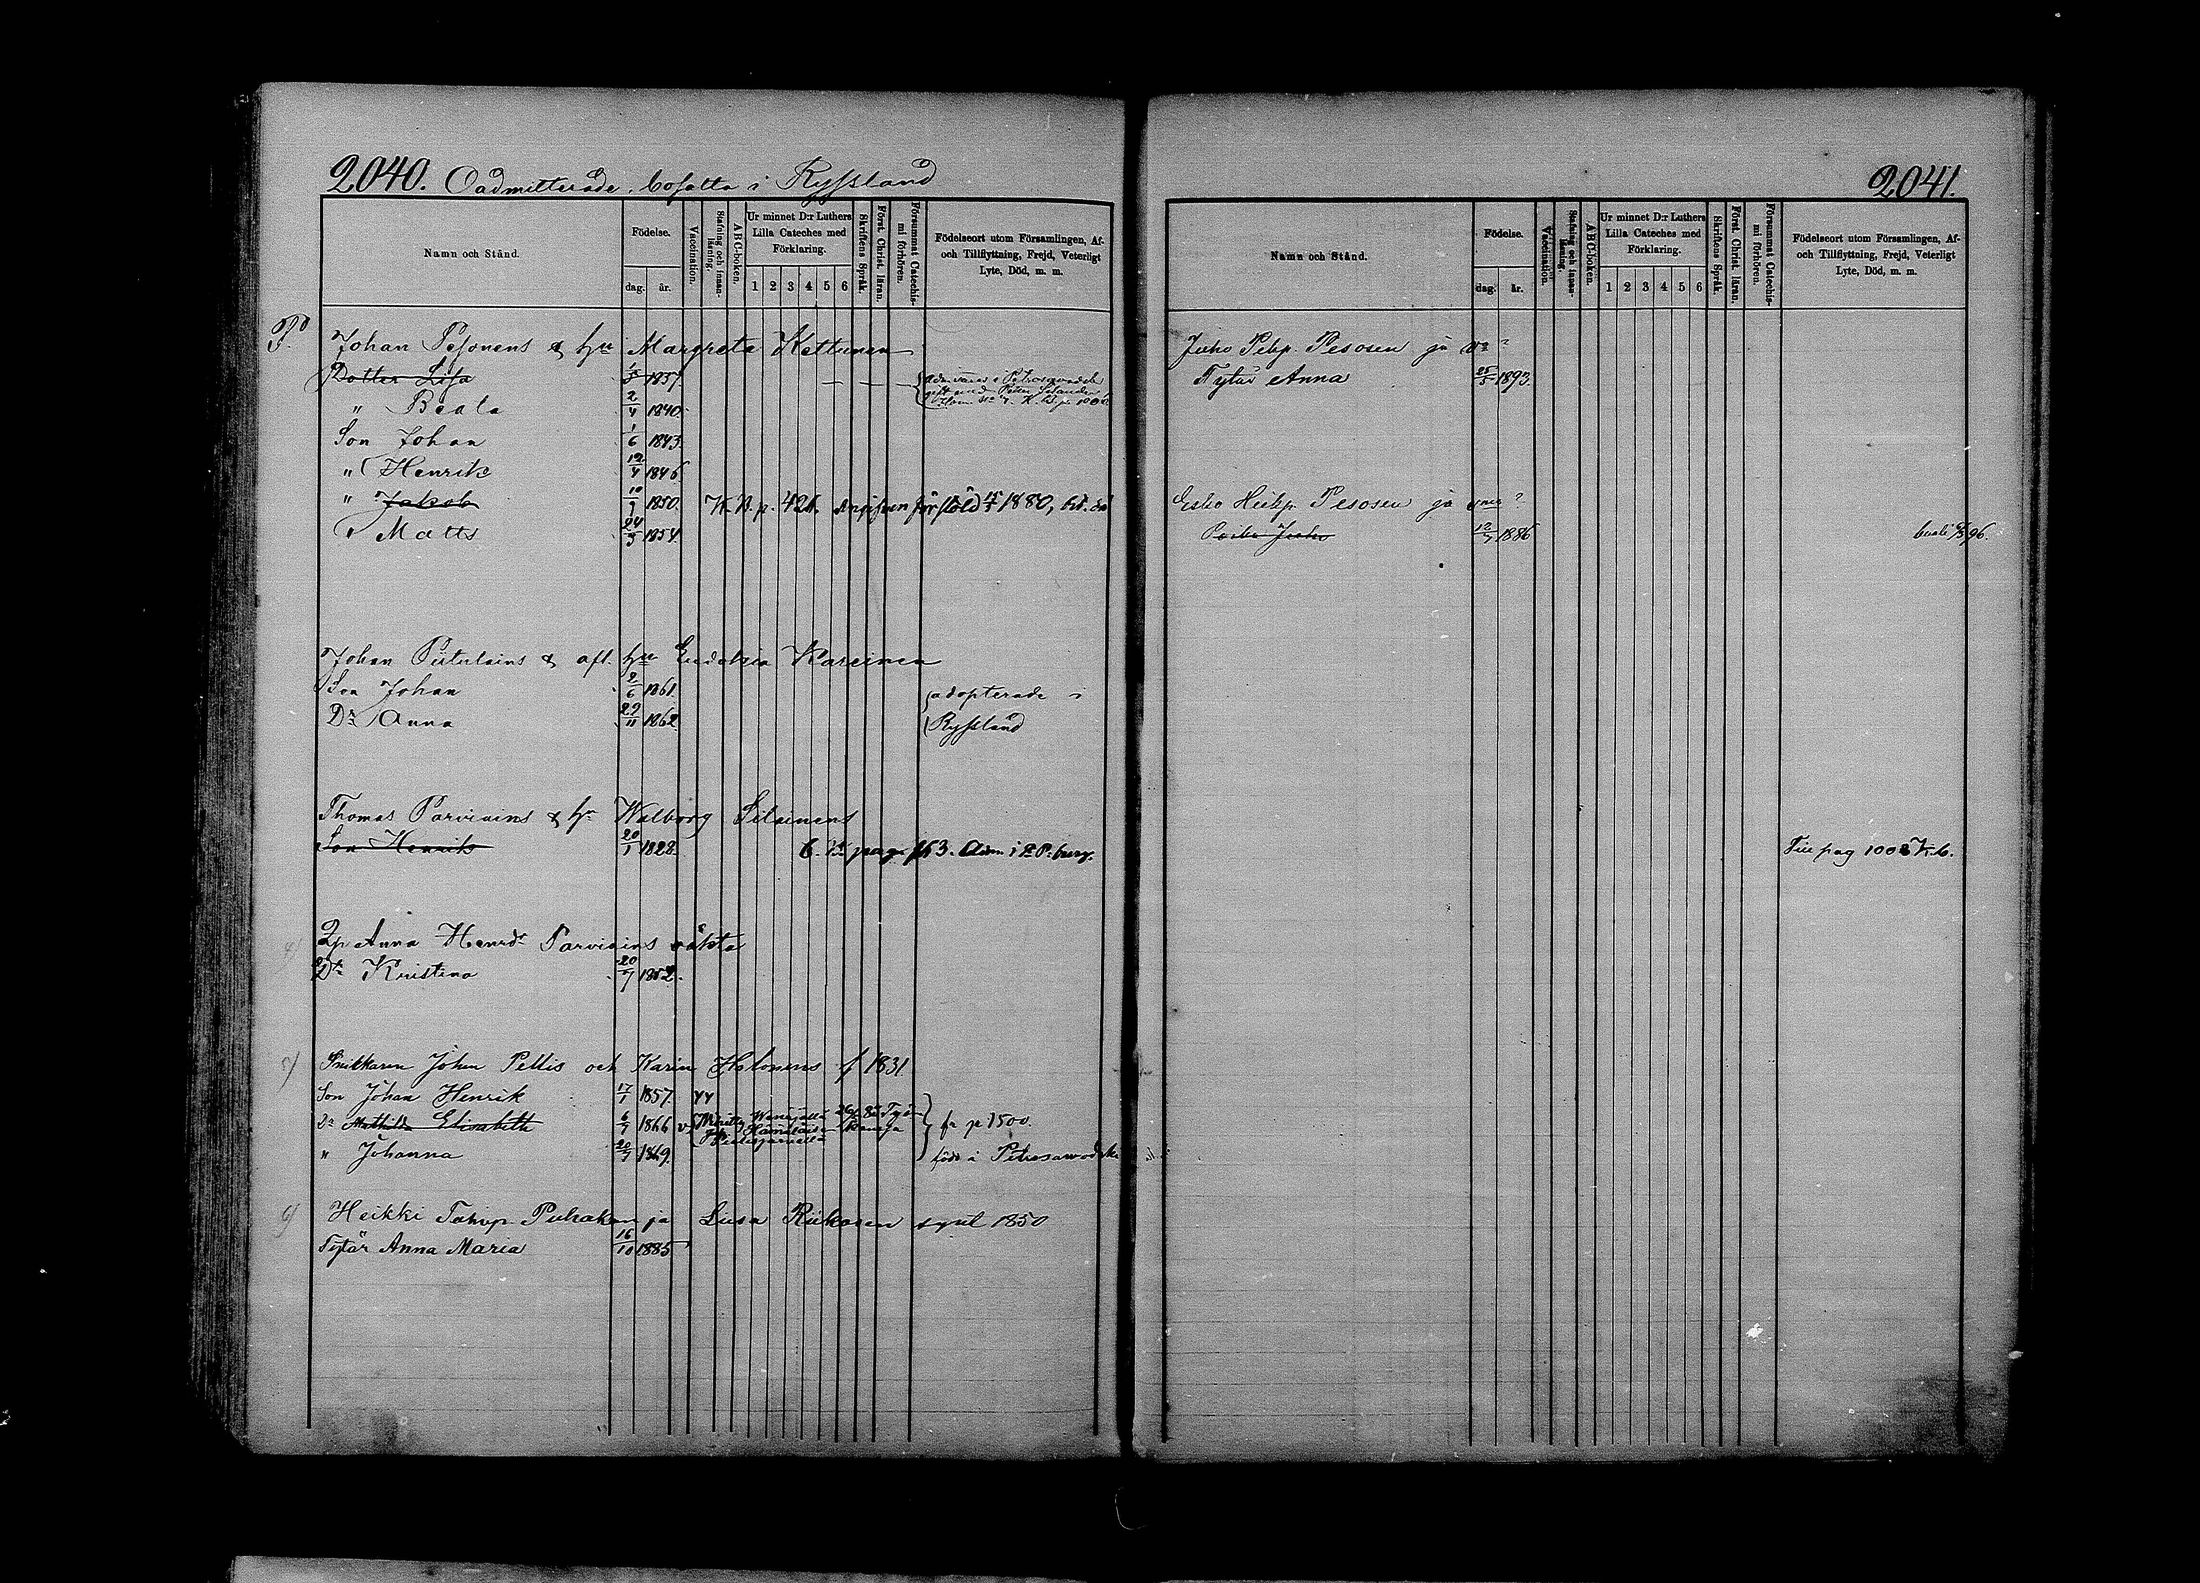 2040. Oadmitterade, bosatta i Ryssland
Namn och Stånd.
Födelse.
dag. år.
Vaccination.
Stafning och innanläsning.
ABC-boken.
Ur minnet D:r Luthers Lilla Cateches med Förklaring.
1 2 3 4 5 6
Skriftens Språk.
Först. Christ. läran.
Försummat Catechismi förhören.
Födelseort utom Församlingen, Af- och Tillflyttning, Frejd, Veterligt Lyte, Död, m. m.
P.
Johan Pesonens & hu Margreta Kettunen
Dotter Lisa 1837 Petrosawodsk
gift med Peter
" Beata 2/4 1840.
Son Johan 1/6 1843.
" Henrik 12/4 1846
" Jakob 10/9 1850. K.B. p. 421. angifven för 1880,
" Matts 24/3 1854.
Johan Piitulains & afl. hu Eudokia Kareinen
Son Johan 2/6 1861. adopterade i
Dr Anna 29/11 1862 Ryssland
Thomas Parviains & hu Walborg Silvinens
Son Henrik 20/1 1828. pag. 163. Adm i St P:burg.
4) Anna Henrdr Parviains oäkta
Dr Kristina 20/7 1852.
5) Snickaren Johan Pellis och Karin Holonens f 1831
Son Johan Henrik 17/1 1857.
Dr Mathilda Elisabeth 6/7 1866 v fr p 1500.
" Johanna 20/7 1869. född i Petrosawodska
6) Heikki Tahvp. Puhakan ja Liisa Riikosen synt 1850
Tytär Anna Maria 16/10 1885
2041.
Namn och Stånd.
Födelse.
dag. år.
Vaccination.
Stafning och innanläsning.
ABC-boken.
Ur minnet D:r Luthers Lilla Cateches med Förklaring.
1 2 3 4 5 6
Skriftens Språk.
Först. Christ. läran.
Försummat Catechismi förhören.
Födelseort utom Församlingen, Af- och Tillflyttning, Frejd, Veterligt Lyte, Död, m. m.
Juho Pekp. Pesosen ja vn ?
Tytär Anna 25/5 1893.
Esko Heikp. Pesosen ja vmo ?
Poika Juho 12/7 1886 kuoli 96.
pag 1008 K.b.